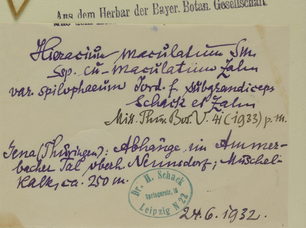 Aus dem Herbar der Bayer. Botan. Gesellschaft.
Hieracium maculatum Sm
Ssp. cu-maculatum Zahn
var. spilophaeum Jord. f. subgrandiceps
Schack et Zahn
Mitt. Thür. Bot. V. 41 (1933) p. m.
Jena (Thüringen): Abhänge im Ammer-
bacher Tal oberh. Nennsdorf; Muschel-
kalk, ca. 250 m.
Dr. H. Schack
Leipzig N 22
24.6.1932.